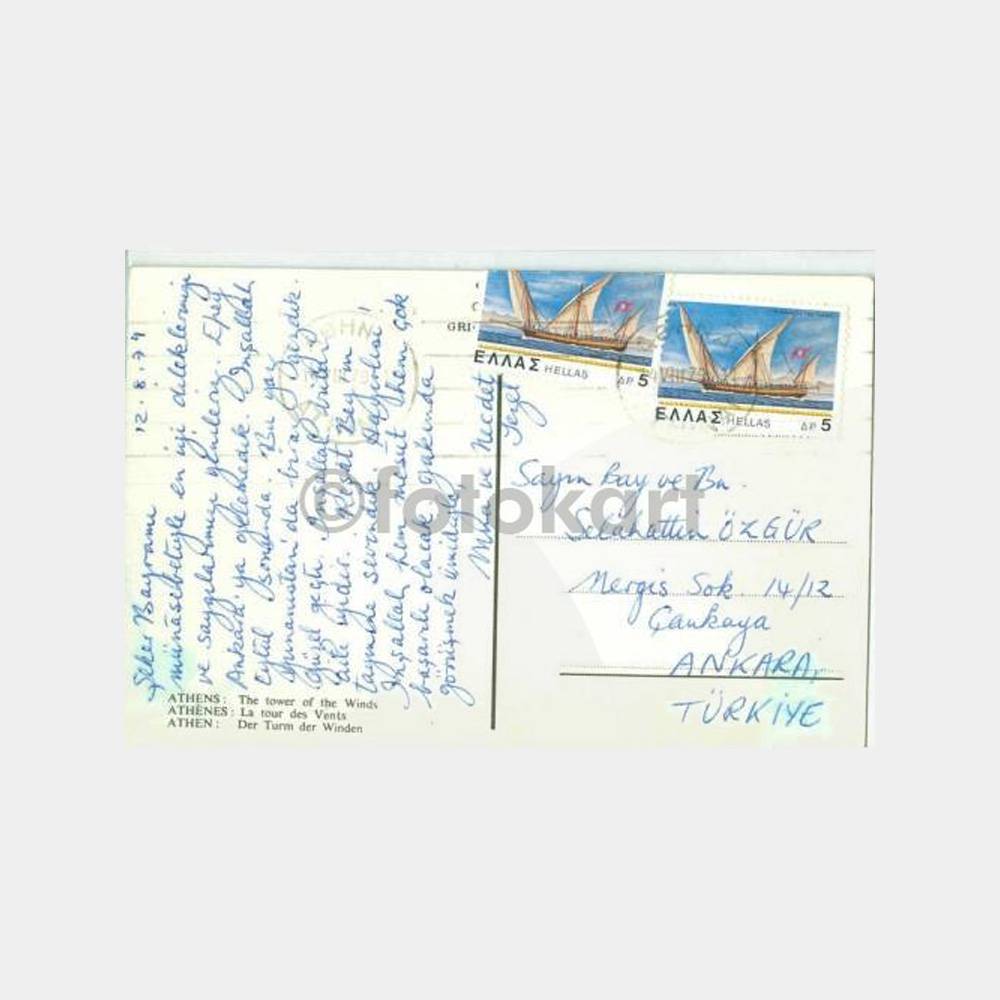 12.8.79
Şeker Bayramı
münâsebetiyle en iyi dileklerimizi
ve saygılarımızı yineleriz. Epey
Ankara'ya gelemedik. İnşallah
Eylûl sonunda. Bu yaz
Yunanistan'da biraz gezdik.
Güzel geçti. İnşallah bütün
aile iyidir. Reşat Bey'in
tayinine sevindik. Hayırlısı!
İnşallah hem mesut hem çok
başarılı olacak. Yakında
görüşmek ümidiyle
ve Necdet
ATHENS: The tower of the Winds
ATHÈNES: La tour des Vents
ATHEN: Der Turm der Winden
GRI
ΕΛΛΑΣ HELLAS ΔΡ 5
ΕΛΛΑΣ HELLAS ΔΡ 5
Sayın Bay ve Bn.
Selahattin ÖZGÜR
Nergis Sok. 14/12
Çankaya
ANKARA,
TÜRKİYE
©fotokart